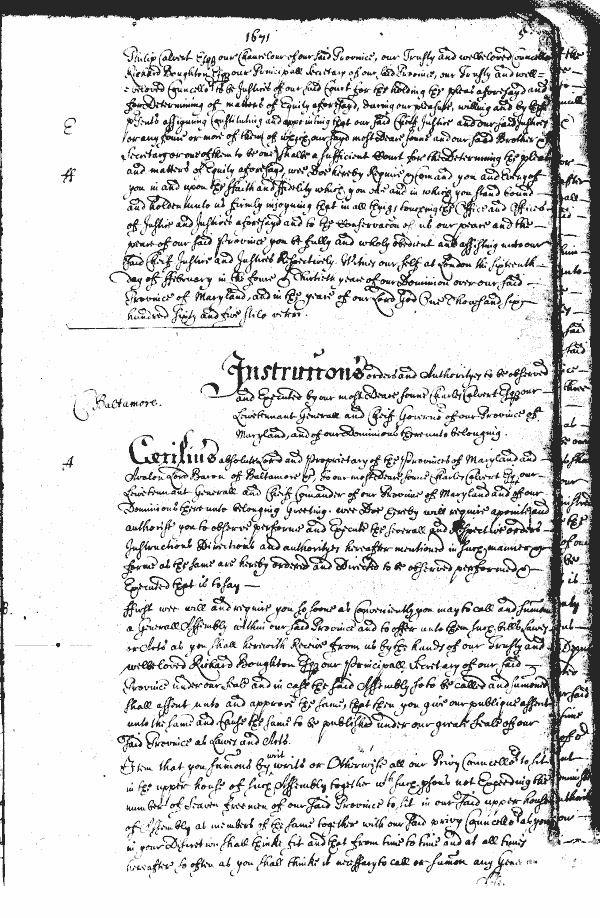 1671
5
Philip Calvert Esqr our Chancelour of our said Province, our Trusty and welbeloved Councello
Richard Boughton Esqr our Principall Secretary of our said Province, our Trusty and well=
=beloved Councello to be Justices of our said Court for the holding the pleas aforesaid and
for Determining of matters of Equity aforesayd, during our pleasure, willing and by these
psents assigning Constituting and appointing that our said Cheif Justice and our said Justices
or any four or more of them of which our sayd most deare sonne and our said Brother
Secretary or one of them to be one shalbe a sufficient Court for the determining the pleas
and matters of Equity aforesayd, wee doe hereby Require Comand you and every of
you in and upon the faith and fidelity which you owe and in which you stand bound
and holden unto us firmly injoyning that in all things touching the Office and Offices
of Justice and Justices aforesayd and to the Conservacon of us our peace and the
peace of our said Province you be fully and wholy obedient and assisting unto our
said Cheif Justice and Justices respectively. Witnes our self at London the sixteenth
day of ffebruary in the fower & Thirtieth yeare of our Dominion over our said
Province of Maryland, and in the yeare of our Lord God One Thousand six
hundred sixty and five stilo veteri.
Instruccons orders and Authorityes to be observed
and Executed by our most Deare sonne Charles Calvert Esqr our
Baltamore.
Lieuetennant Generall and Cheif Governor of our Province of
Maryland, and of our Dominions thereunto belonging
Cecilius absolute Lord and Proprietary of the Provinces of Maryland and
Avalon Lord Baron of Baltamore &c, to our most deare sonne Charles Calvert Esqr our
Lieutennant Generall and Cheif Comander of our Province of Maryland and of our
Dominions thereunto belonging Greeting. wee doe hereby will require appoint and
authorise you to observe performe and Execute the severall and respective orders
Instructions Directions and authorityes hereafter mentioned in such manner &
forme as the same are hereby ordered and directed to be observed performed &
Executed that is to say
ffirst wee will and require you so soone as Conveniently you may to call and summon
a Generall Assembly within our said Province and to offer unto them such bills Lawes
or Acts as you shall herewith Receive from us by the hands of our Trusty and
welbeloved Richard Boughton Esqr our Principall Secretary of our said
Province under our seale and in case the said Assembly so to be called and sumoned
shall assent unto and approve the same, that then you give our publique assent
unto the same and Cause the same to be published under our greate seale of our
said Province as Lawes and Acts.
Item that you sumons by writt writs or Otherwise all our Privy Councello to sit
in the upper house of such Assembly togethr wth such psons not Exceeding the
number of seaven freemen of our said Province to sit in our said upper house
of Assembly as members of the same together with our said privy Councello as you
in your discretion shall thinke fit and that from time to time and at all times
hereafter so often as you shall thinke it necessary to call or sumon any Gener